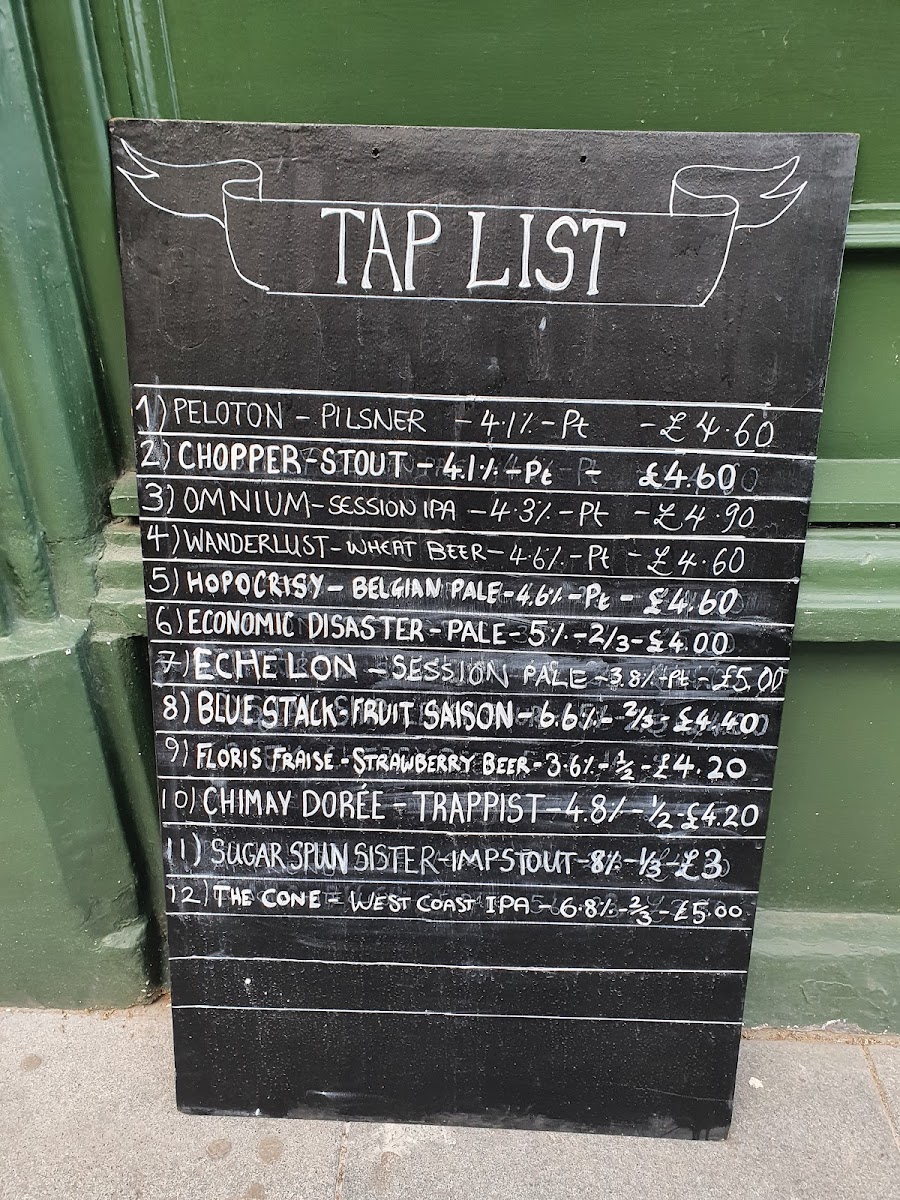 TAP LIST
1) PELOTON - PILSNER - 4.1% - Pt - £4.60
2) CHOPPER - STOUT - 4.1% - Pt - £4.60
3) OMNIUM - SESSION IPA - 4.3% - Pt - £4.90
4) WANDERLUST - WHEAT BEER - 4.6% - Pt - £4.60
5) HOPOCRISY - BELGIAN PALE - 4.6% - Pt - £4.60
6) ECONOMIC DISASTER - PALE - 5% - 2/3 - £4.00
7) ECHELON - SESSION PALE - 3.8% - Pt - £5.00
8) BLUE STACK - FRUIT SAISON - 6.6% - 2/3 - £4.40
9) FLORIS FRAISE - STRAWBERRY BEER - 3.6% - 1/2 - £4.20
10) CHIMAY DORÉE - TRAPPIST - 4.8% - 1/2 - £4.20
11) SUGAR SPUN SISTER - IMP STOUT - 8% - 1/3 - £3
12) THE CONE - WEST COAST IPA - 6.8% - 2/3 - £5.00